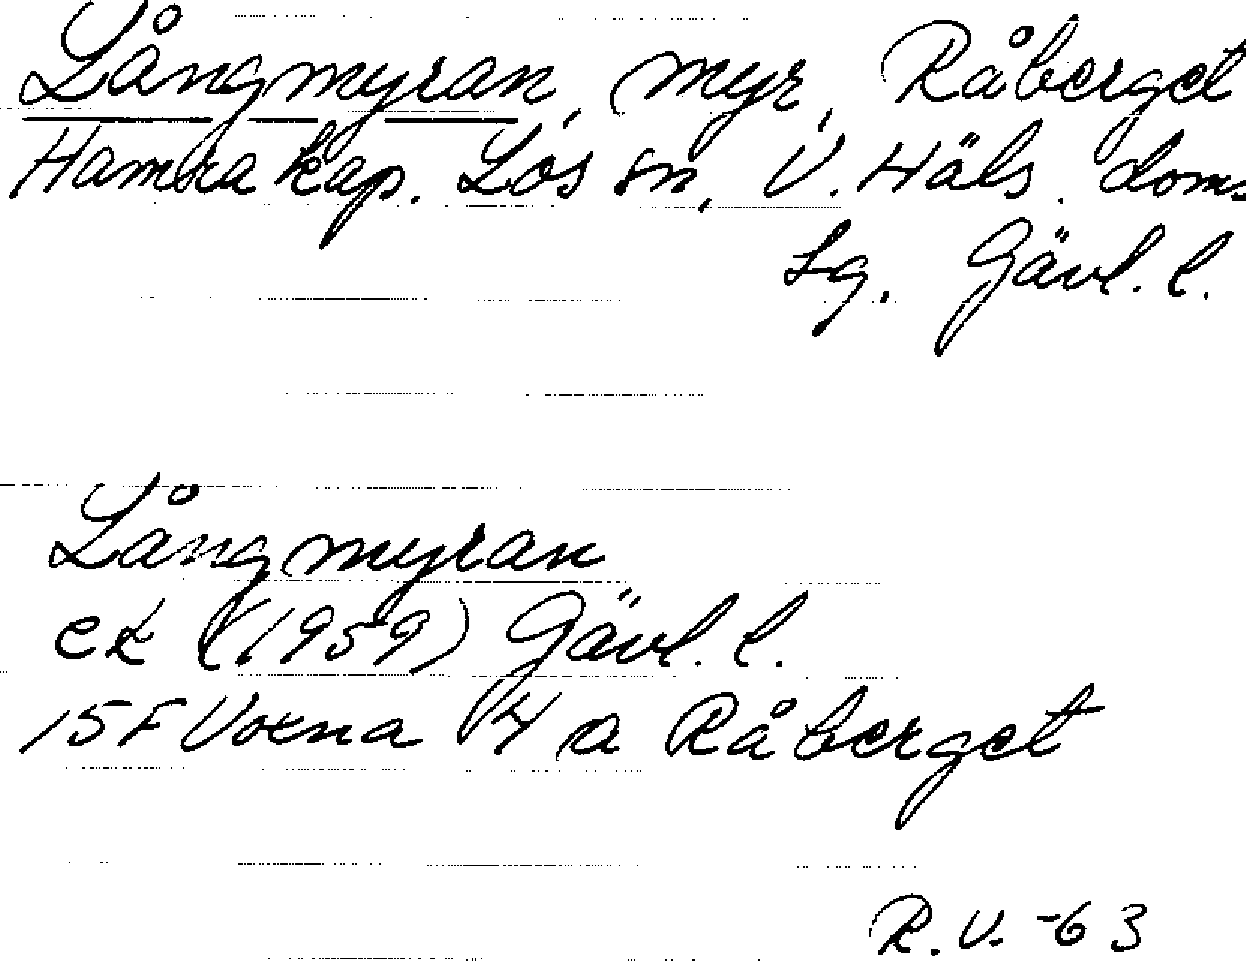 Långmyran, myr, Råberget
Hamra kap. Los sn, V. Häls. doms
sg. Gävl. l.
Långmyran
ek (1959) Gävl. l.
15F Voxna 4 a Råberget
R.V. -63